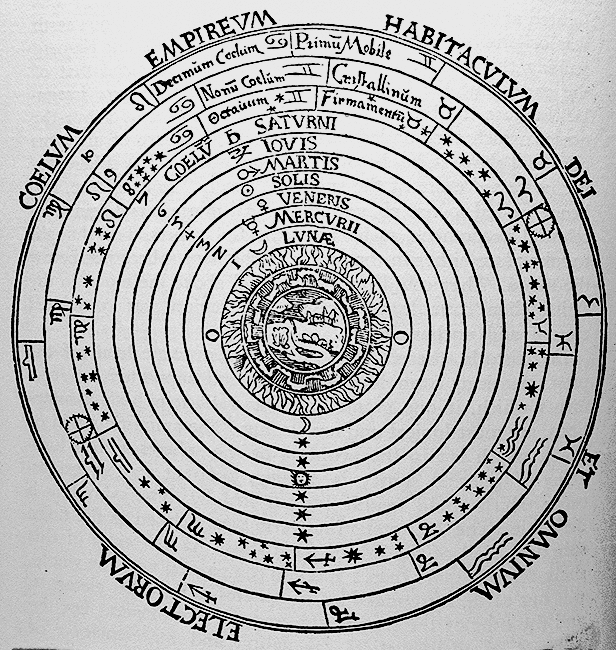 COELVM EMPIREVM HABITACVLVM DEI ET OMNIVM ELECTORVM
Decimum Coelum Primũ Mobile
Nonũ Coelum Cristallinum
Octauum Firmamentũ
COELV SATVRNI
IOVIS
MARTIS
SOLIS
VENERIS
MERCVRII
LVNÆ
10
9
8
7
6
5
4
3
2
1